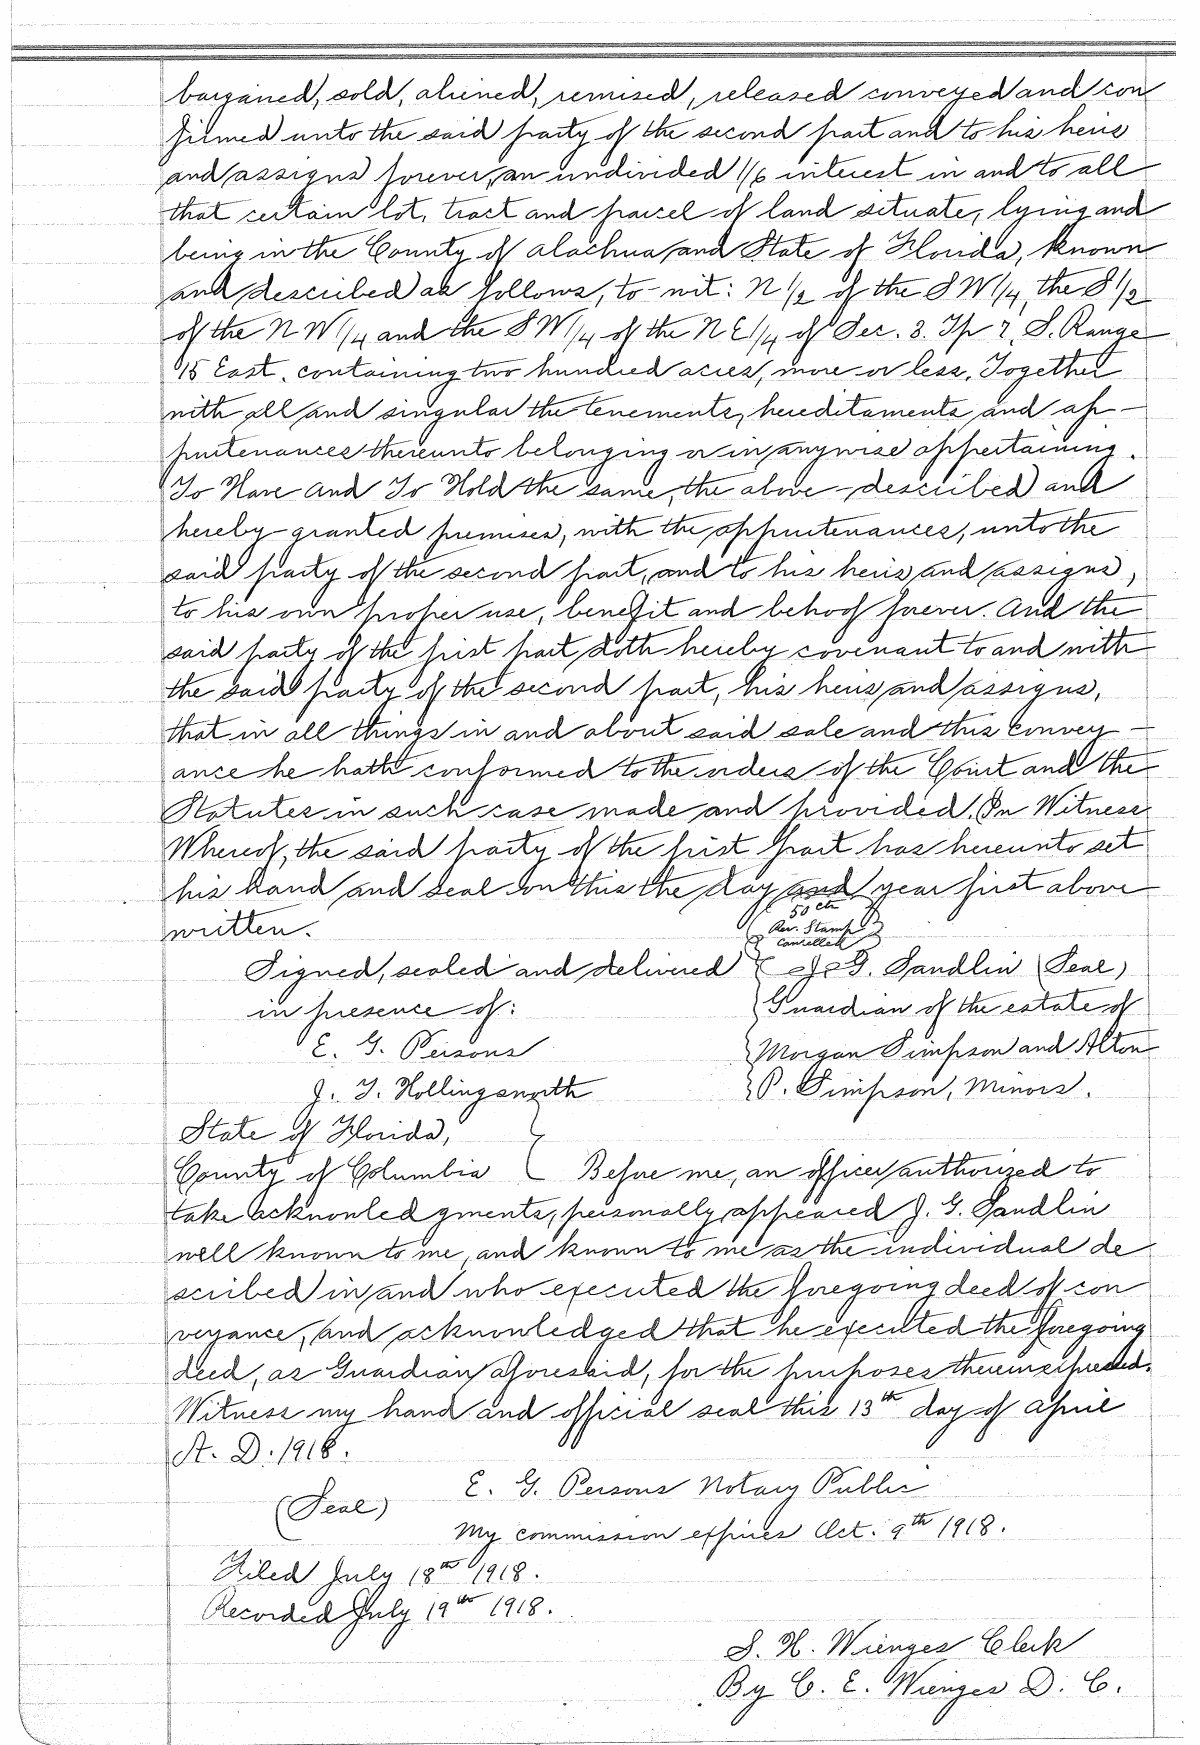 bargained, sold, aliened, remised, released conveyed and con
firmed unto the said party of the second part and to his heirs
and assigns forever, an undivided 1/6 interest in and to all
that certain lot, tract and parcel of land situate, lying and
being in the County of Alachua and State of Florida, known
and described as follows, to-wit: N 1/2 of the SW 1/4, the S 1/2
of the NW 1/4 and the SW 1/4 of the NE 1/4 of Sec. 3. Tp 7, S. Range
15 East, containing two hundred acres, more or less, Together
with all and singular the tenements, hereditaments and ap-
purtenances thereunto belonging or in anywise appertaining.
To Have And To Hold the same, the above-described and
hereby granted premises, with the appurtenances, unto the
said party of the second part, and to his heirs and assigns,
to his own proper use, benefit and behoof forever. And the
said party of the first part doth hereby covenant to and with
the said party of the second part, his heirs and assigns,
that in all things in and about said sale and this convey-
ance he hath conformed to the orders of the Court and the
Statutes in such case made and provided. In Witness
Whereof, the said party of the first part has hereunto set
his hand and seal on this the day and year first above
written.
50 cts
Rev. Stamp
Cancelled
Signed, sealed and delivered J. G. Sandlin (Seal)
in presence of: Guardian of the estate of
E. G. Persons Morgan Simpson and Alton
J. T. Hollingsworth P. Simpson, Minors.
State of Florida,
County of Columbia Before me, an officer authorized to
take acknowledgments, personally appeared J. G. Sandlin
well known to me, and known to me as the individual de
scribed in and who executed the foregoing deed of con
veyance, and acknowledged that he executed the foregoing
deed, as Guardian aforesaid, for the purposes therein expressed.
Witness my hand and official seal this 13th day of April
A. D. 1918.
E. G. Persons Notary Public
(Seal)
My commission expires Oct. 9th 1918.
Filed July 18th 1918.
Recorded July 19th 1918.
S. H. Wienges Clerk
By C. E. Wienges D. C.